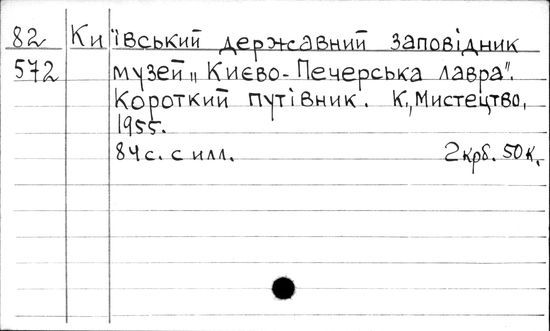 82 Київський державний заповідник
572 музей „Києво-Печерська лавра".
Короткий путівник. К., Мистецтво,
1955.
84 с. с илл. 2 крб. 50 к.